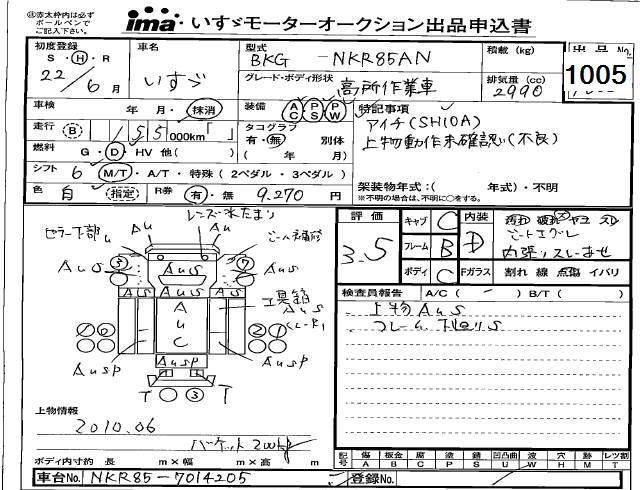 ㊟赤太枠内は必ずボールペンでご記入下さい。
ima いすゞモーターオークション出品申込書
初度登録 S・H・R 22年 6月
車名 いすゞ
型式 BKG -NKR85AN
積載 (kg)
出品No.
1005
グレード・ボディ形状 高所作業車
排気量 (cc) 2990
車検 年 月・抹消
装備 AC PS PW
特記事項
アイチ(SH10A)
上物動作未確認(不良)
走行 (B) 155000km「 」
タコグラフ 有・無 別体 ( 年 月)
燃料 G・D・HV 他( )
シフト 6 M/T・A/T・特殊(2ペダル・3ペダル)
架装物年式:( 年式)・不明
※不明の場合は、不明に○をする。
色 白 (指定) R券 有・無 9.270 円
評価 3.5
キャブ C
フレーム B
ボディ C
内装 D
内張りスレ
Fガラス 割れ 線 点傷 イバリ
検査員報告 A/C( - ) B/T( )
上物AUS
フレーム下回りS
ピラー下部U
AU
AU
AUS
AUS
AUS
AUS
AUS
工具箱
AUS
AUC
AUSP
AUSP
AUSP
T
T
上物情報
2010.06
バケット200kg
ボディ内寸約 長 m×幅 m×高 m
記号 傷A 板金B 腐C 塗P 錆S 凹凸曲U 波W 穴H 跡M レツ割T
車台No. NKR85-7014205
登録No.